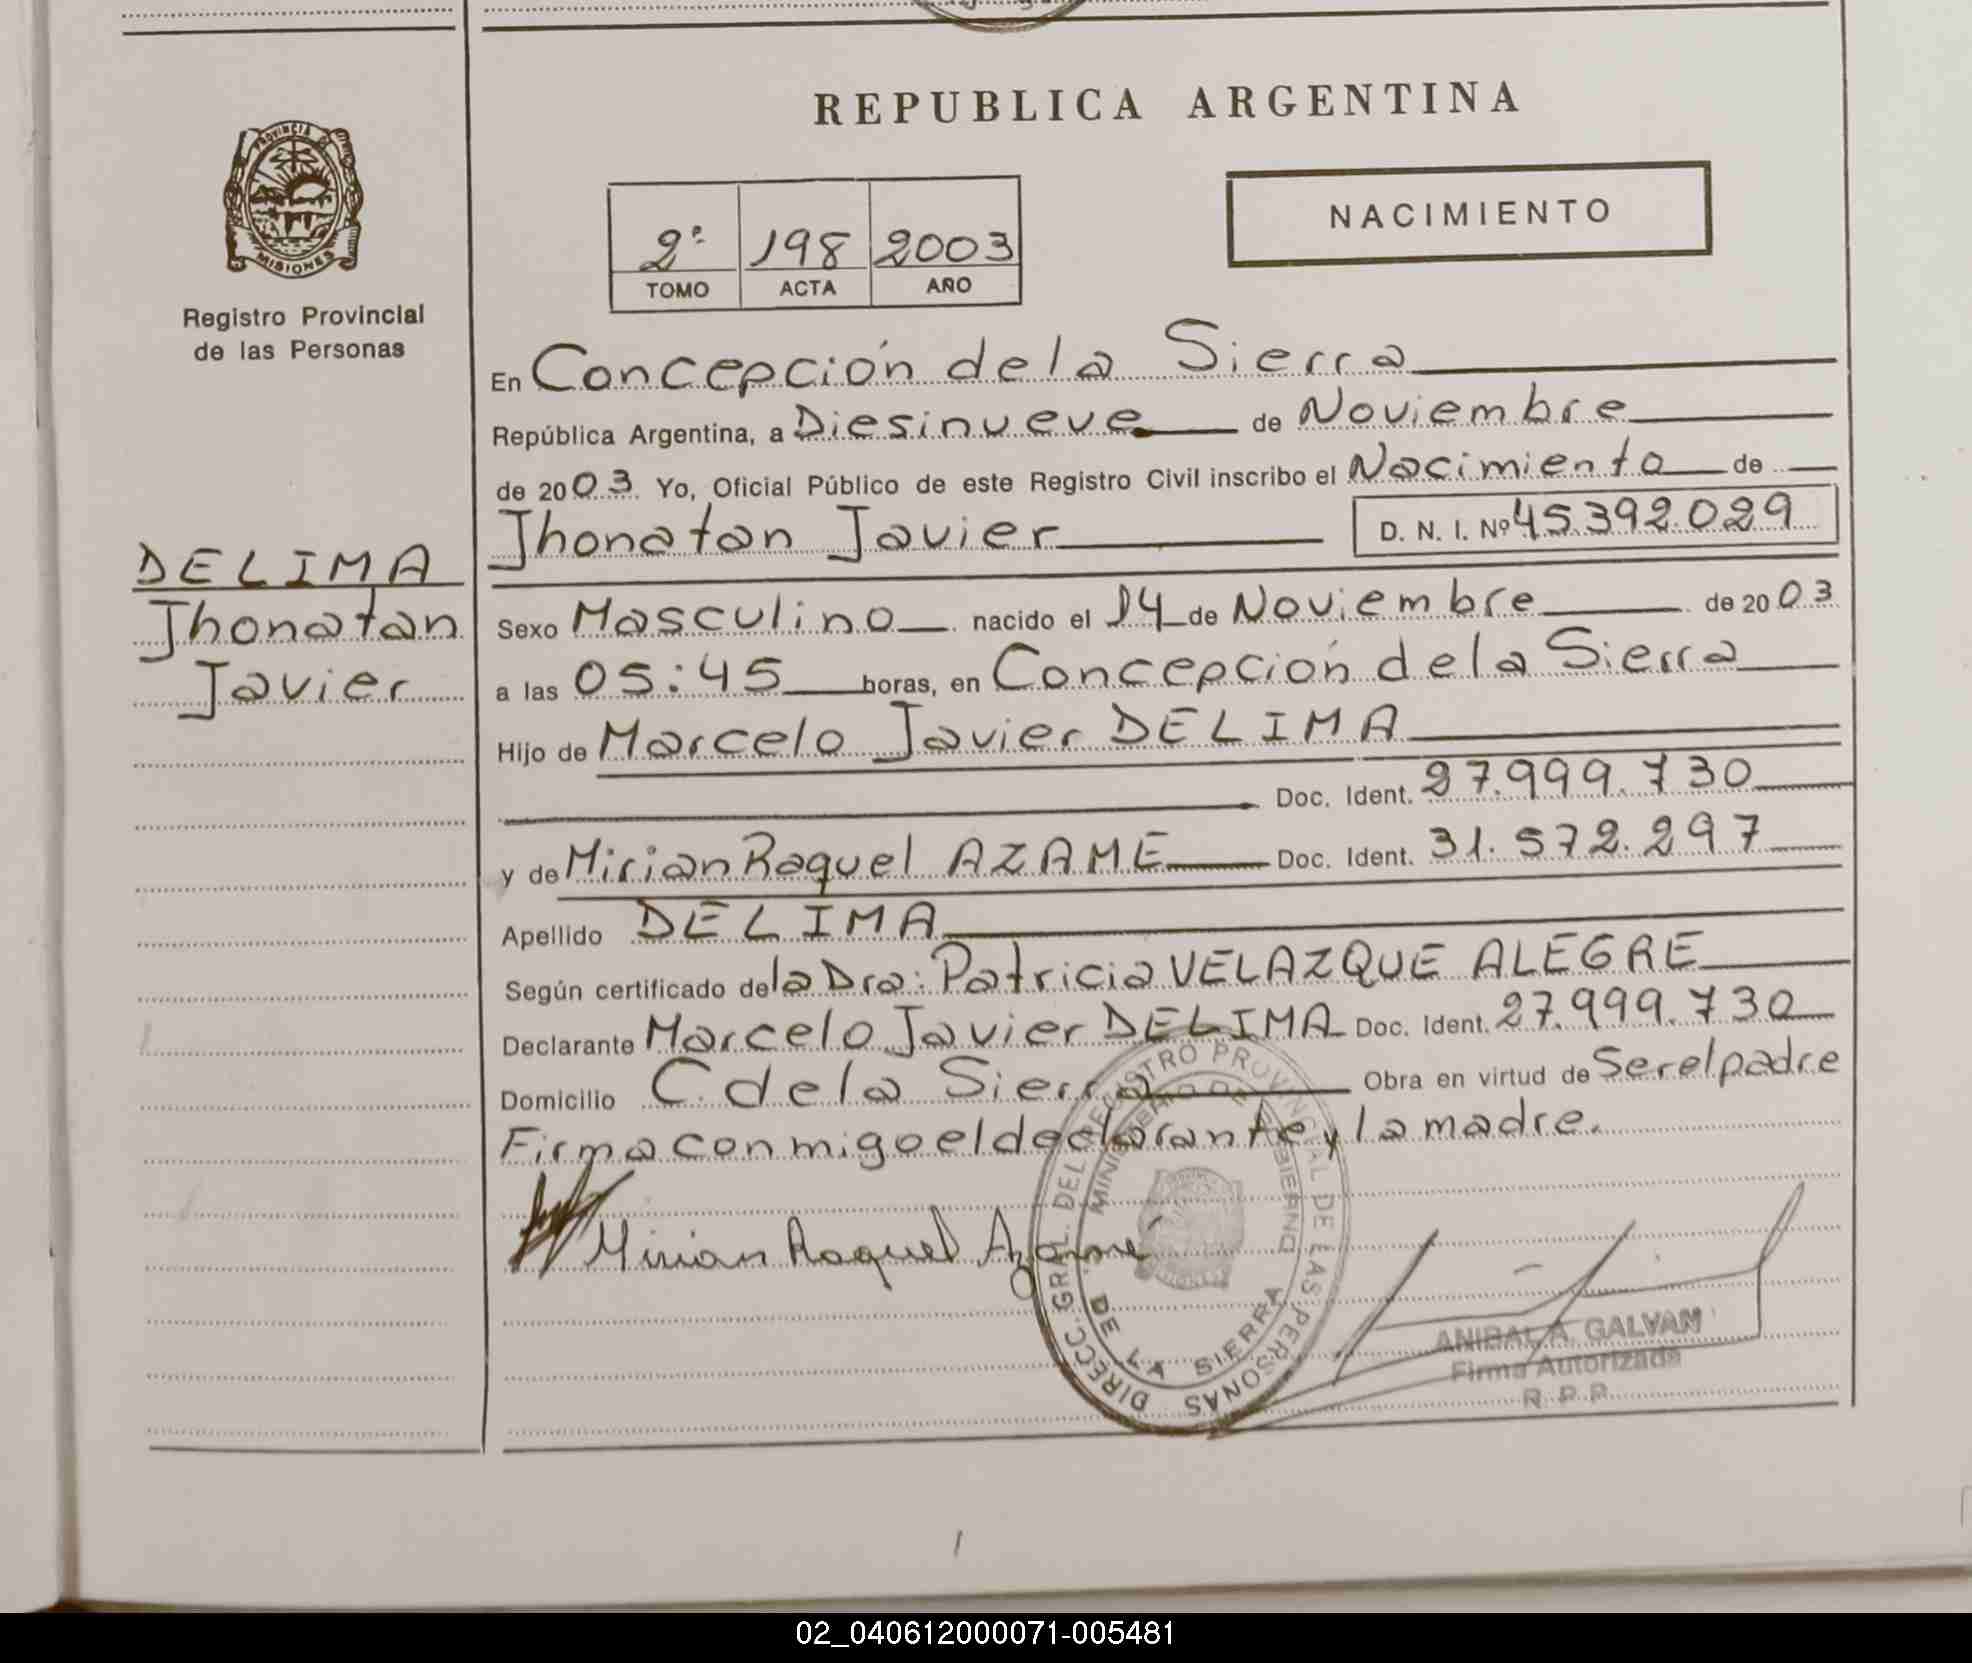 REPUBLICA ARGENTINA
PROVINCIA DE
MISIONES
Registro Provincial
de las Personas
2º 198 2003
TOMO ACTA AÑO
NACIMIENTO
En Concepción de la Sierra
República Argentina, a Diesinueve de Noviembre
de 2003 Yo, Oficial Público de este Registro Civil inscribo el Nacimiento de
Jhonatan Javier D. N. I. Nº 45.392.029
DELIMA
Jhonatan
Javier
Sexo Masculino nacido el 14 de Noviembre de 2003
a las 05:45 horas, en Concepción de la Sierra
Hijo de Marcelo Javier DELIMA
Doc. Ident. 27.999.730
y de Mirian Raquel AZAME Doc. Ident. 31.572.297
Apellido DELIMA
Según certificado de la Dra: Patricia VELAZQUE ALEGRE
Declarante Marcelo Javier DELIMA Doc. Ident. 27.999.730
Domicilio C. de la Sierra Obra en virtud de Ser el padre
Firma conmigo el declarante y la madre.
Mirian Raquel Azame
DIRECC. GRAL. DEL REGISTRO PROVINCIAL DE LAS PERSONAS
MINISTERIO DE GOBIERNO
DE LA SIERRA
ANIBAL A. GALVAN
Firma Autorizada
R. P. P.
02_040612000071-005481